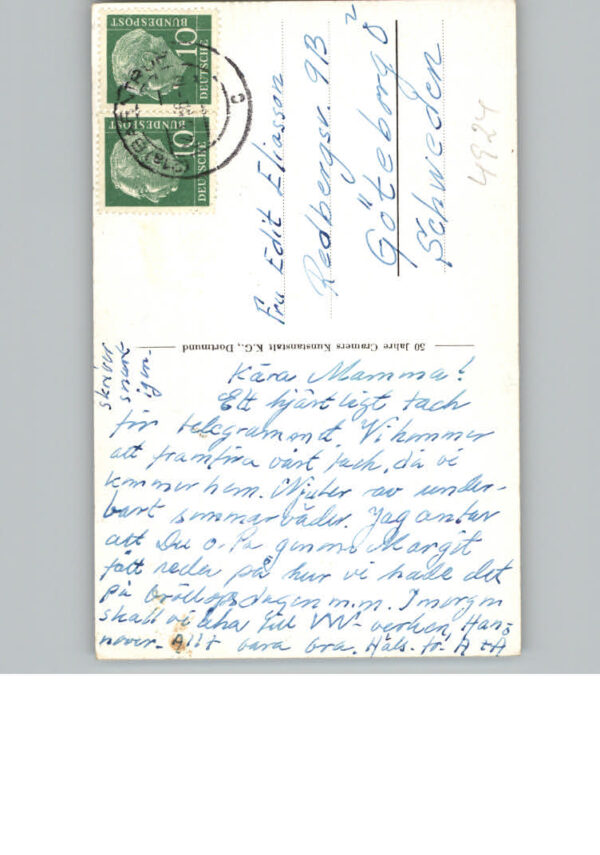 10
DEUTSCHE
BUNDESPOST
10
DEUTSCHE
BUNDESPOST
Fru Edit Eliasson
Redbergsv. 9B
Göteborg Ö
2
Schweden
4924
50 Jahre Cramers Kunstanstalt K.G., Dortmund
Kära Mamma!
Ett hjärtligt tack
för telegrammet. Vi kommer
att framföra vårt tack, då vi
kommer hem. Njuter av under-
bart sommarväder. Jag antar
att Du o. Pa genom Margit
fått reda på hur vi hade det
på bröllopsdagen m.m. I morgon
skall vi åka till VW-verken, Han-
nover. Allt bara bra. Häls. fr. A & A
skriver
snart
igen.